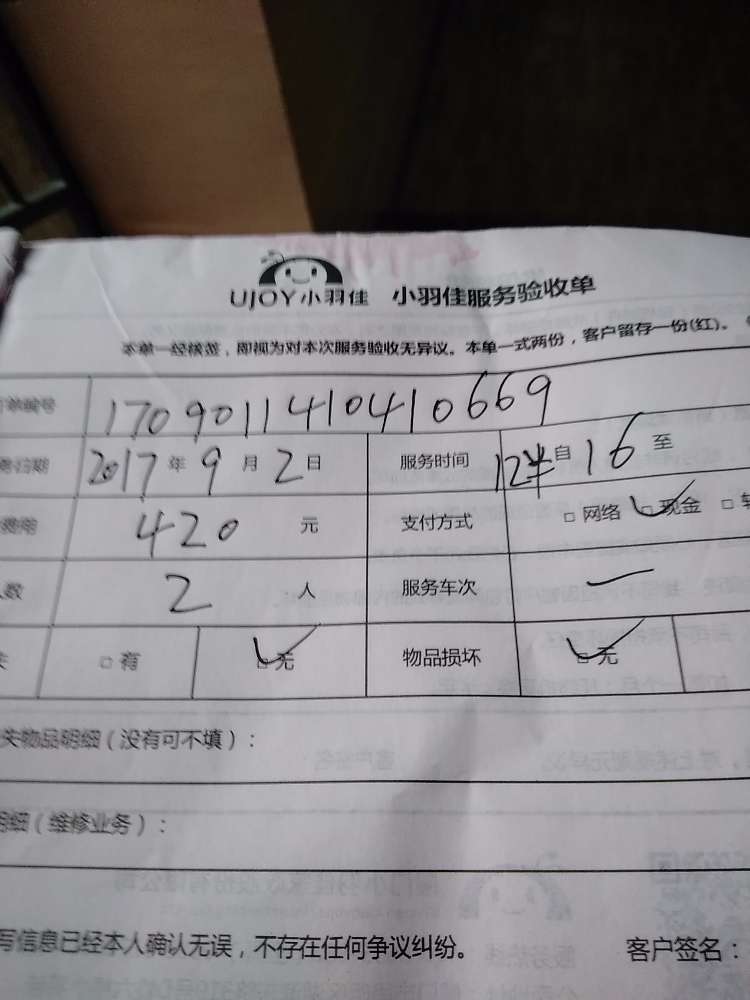 UJOY小羽佳 小羽佳服务验收单
本单一经核签，即视为对本次服务验收无异议。本单一式两份，客户留存一份(红)。
单编号 1709011410410669
日期 2017年9月2日 服务时间 12半自16至
费用 420元 支付方式 □网络 ☑现金 □转
人数 2人 服务车次 一
失 □有 ☑无 物品损坏 ☑无
失物品明细（没有可不填）：
明细（维修业务）：
写信息已经本人确认无误，不存在任何争议纠纷。 客户签名：